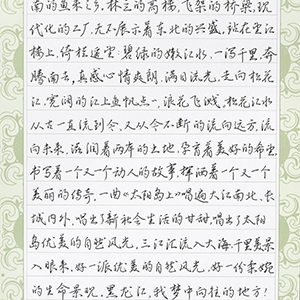 南的鱼米之乡。林立的高楼,飞架的桥梁,现
代化的工厂,无不展示着东北的兴盛。站在空江
桥上,倚栏遥望:碧绿的嫩江水,一泻千里,奔
腾南去,真感心情爽朗。满目流光,走向松花
江,宽阔的江上鱼帆点点,浪花飞溅。松花江水
从古一直流到今,又从今不断的流向远方,流
向未来。滋润着两岸的土地,孕育着美好的希望,
书写着一个又一个动人的故事,挥洒着一个又一个
美丽的传奇,一曲《太阳岛上》唱遍大江南北、长
城内外,唱出了新社会生活的甘甜,唱出了太阳
岛优美的自然风光,三江汇流入大海,千里美景
入眼来,好一派优美的自然风光,好一份柔婉
的生命景观,黑龙江,我梦中向往的地方!